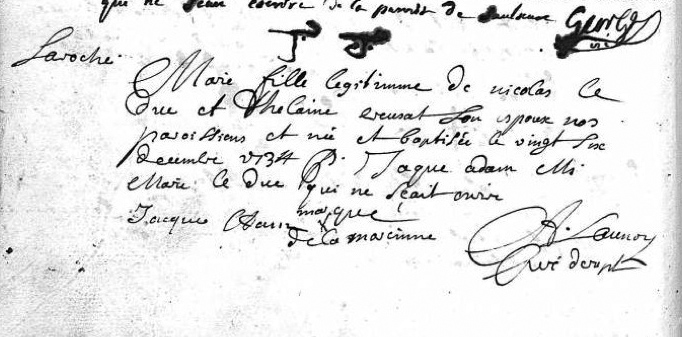 que ne sçan de la parroisse de
Laroche
Marie fille legitimme de nicolas le
Duc et Thelaine son espoux nos
paroissiens et née et baptisée le vingt six
decembre 1734 P. Jaque adam M
Marie le duc qui ne sçait ecrire
Jacque adam marque
de la marainne
Curé